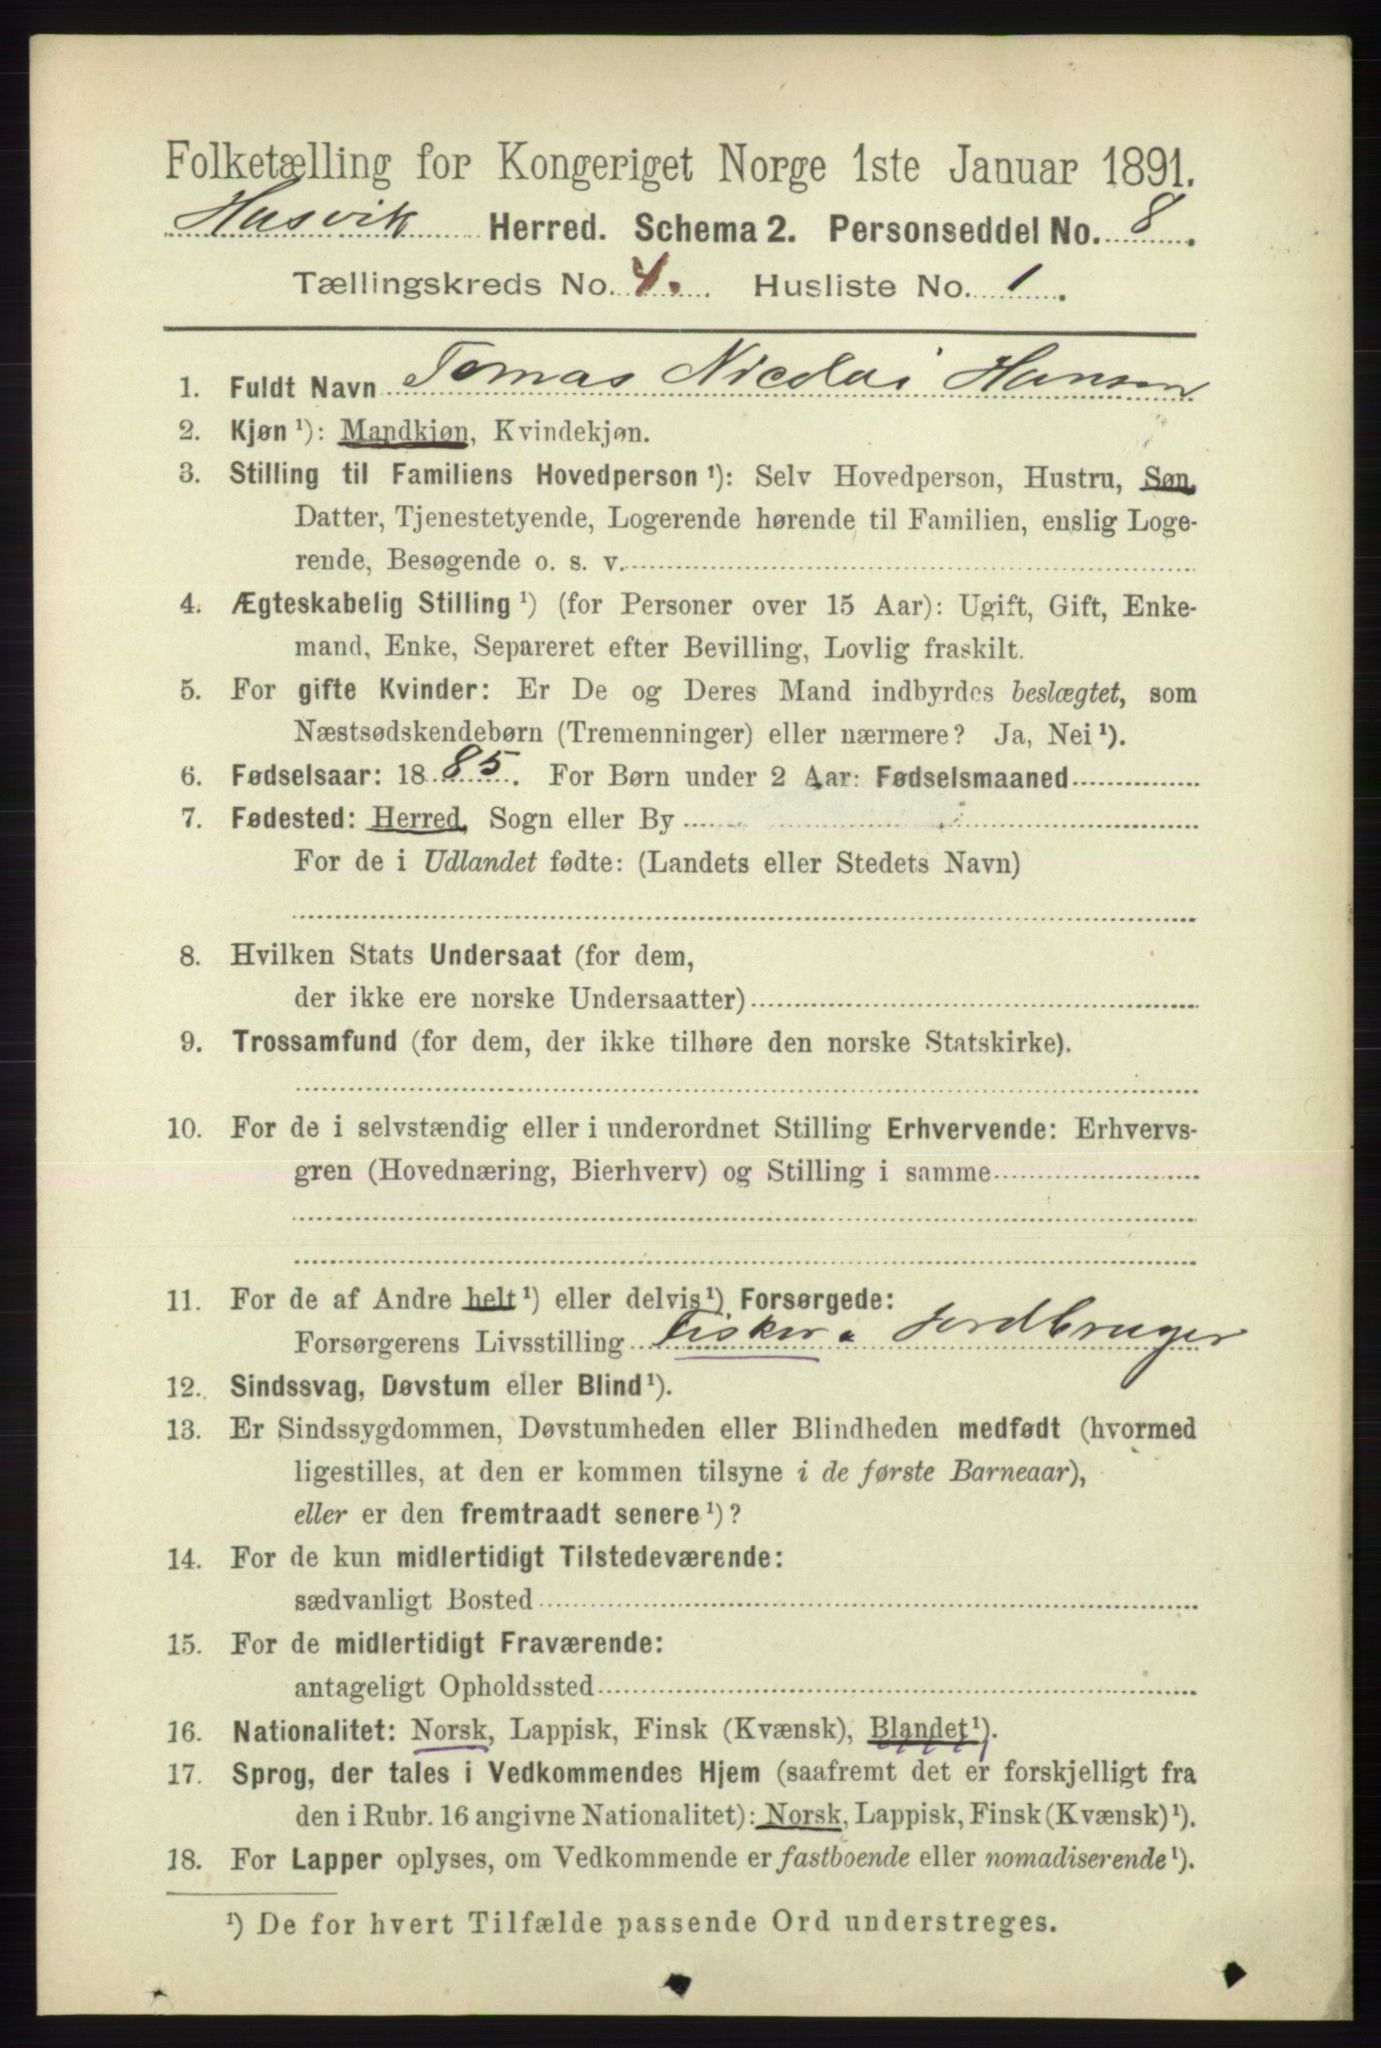 Folketælling for Kongeriget Norge 1ste Januar 1891.
Hasvik Herred. Schema 2. Personseddel No. 8.
Tællingskreds No. 4. Husliste No. 1.
1. Fuldt Navn Tomas Nicolai Hansen
2. Kjøn ¹): Mandkjøn, Kvindekjøn.
3. Stilling til Familiens Hovedperson ¹): Selv Hovedperson, Hustru, Søn,
Datter, Tjenestetyende, Logerende hørende til Familien, enslig Loge-
rende, Besøgende o. s. v.
4. Ægteskabelig Stilling ¹) (for Personer over 15 Aar): Ugift, Gift, Enke-
mand, Enke, Separeret efter Bevilling, Lovlig fraskilt.
5. For gifte Kvinder: Er De og Deres Mand indbyrdes beslægtet, som
Næstsødskendebørn (Tremenninger) eller nærmere? Ja, Nei ¹).
6. Fødselsaar: 1885. For Børn under 2 Aar: Fødselsmaaned
7. Fødested: Herred, Sogn eller By
For de i Udlandet fødte: (Landets eller Stedets Navn)
8. Hvilken Stats Undersaat (for dem,
der ikke ere norske Undersaatter)
9. Trossamfund (for dem, der ikke tilhøre den norske Statskirke).
10. For de i selvstændig eller i underordnet Stilling Erhvervende: Erhvervs-
gren (Hovednæring, Bierhverv) og Stilling i samme
11. For de af Andre helt ¹) eller delvis ¹) Forsørgede:
Forsørgerens Livsstilling Fisker & Jordbruger
12. Sindssvag, Døvstum eller Blind ¹).
13. Er Sindssygdommen, Døvstumheden eller Blindheden medfødt (hvormed
ligestilles, at den er kommen tilsyne i de første Barneaar),
eller er den fremtraadt senere ¹)?
14. For de kun midlertidigt Tilstedeværende:
sædvanligt Bosted
15. For de midlertidigt Fraværende:
antageligt Opholdssted
16. Nationalitet: Norsk, Lappisk, Finsk (Kvænsk), Blandet ¹).
17. Sprog, der tales i Vedkommendes Hjem (saafremt det er forskjelligt fra
den i Rubr. 16 angivne Nationalitet): Norsk, Lappisk, Finsk (Kvænsk) ¹).
18. For Lapper oplyses, om Vedkommende er fastboende eller nomadiserende ¹).
¹) De for hvert Tilfælde passende Ord understreges.